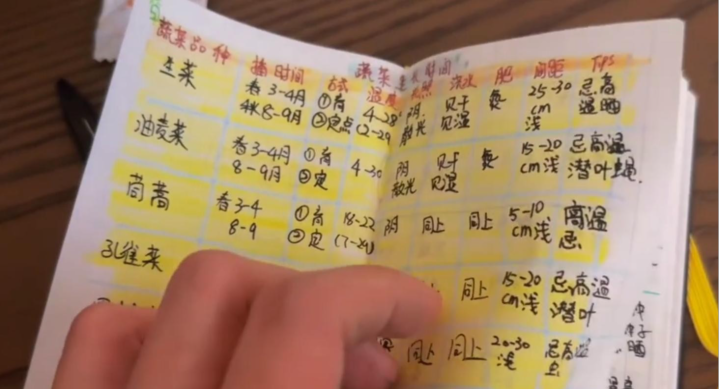 蔬菜品种 播时间 方式 蔬菜生长时间
温度 光照 浇水 肥 间距 Tips
生菜 春3-4月 秋8-9月 ①育 ②定点 阴 散光 见干 见湿 氮 25-30 cm 浅 忌高温晒
油麦菜 春3-4月 8-9月 ①育 ②定 4-30 阴 散光 见干 见湿 氮 15-20 cm浅 忌高温 潜叶蝇
茼蒿 春3-4 8-9 ①育 ②定 18-22 阴 同上 同上 5-10 cm浅 高温忌
孔雀菜 同上 15-20 cm浅 忌高温 潜叶
同上 同上 20-30 浅 忌高温 虫